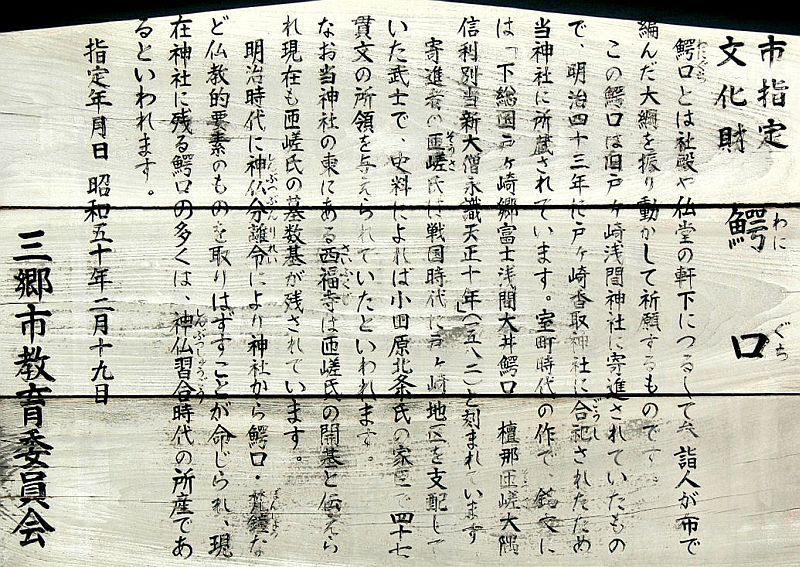 市指定
文化財
鰐口
わにぐち
鰐口とは社殿や仏堂の軒下につるして参詣人が布で
編んだ大綱を振り動かして祈願するものです。
この鰐口は旧戸ヶ崎浅間神社に寄進されていたもの
で、明治四十三年に戸ヶ崎香取神社に合祀されたため
当神社に所蔵されています。室町時代の作で、銘文に
は「下総国戸ヶ崎郷富士浅間大井鰐口 檀那匝嵯大隅
信利別当新大僧永識天正十年(一五八二)」と刻まれています
寄進者の匝嵯氏は戦国時代に戸ヶ崎地区を支配して
いた武士で、史料によれば小田原北条氏の家臣で四十七
貫文の所領を与えられていたといわれます。
なお当神社の東にある西福寺は匝嵯氏の開基と伝えら
れ現在も匝嵯氏の墓数基が残されています。
明治時代に神仏分離令により神社から鰐口・梵鐘な
ど仏教的要素のものを取りはずすことが命じられ、現
在神社に残る鰐口の多くは、神仏習合時代の所産であ
るといわれます。
指定年月日 昭和五十年二月十九日
三郷市教育委員会